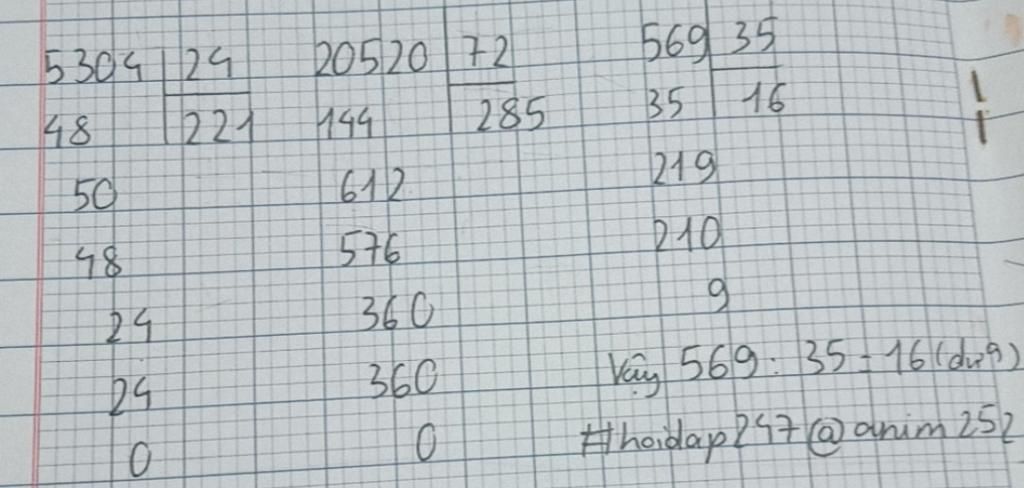 5304 24
48 221
50
48
24
24
0
20520 72
144 285
612
576
360
360
0
569 35
35 16
219
210
9
Vậy 569 : 35 = 16 (dư 9)
#hoidap247@anim252